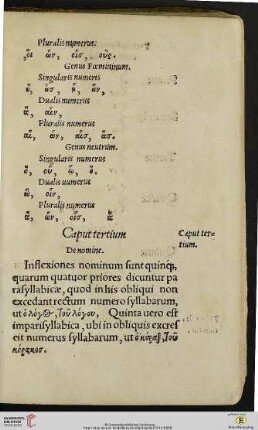 Pluralis numerus.
οἳ ὧν, οἷσ, οὕς.
Genus Fœmininum.
Singularis numeris
ἣ, ἧσ, ᾗ, ἣν,
Dualis numerus
ἃ, αἷν,
Pluralis numerus
αἳ, ὧν, αἷσ, ἃσ.
Genus neutrum.
Singularis numerus
ὃ, οὗ, ᾧ, ὃ.
Dualis numerus
ὣ, οἷν,
Pluralis numerus
ἃ, ὧν, οἷσ, ἃ
Caput tertium
De nomine.
Caput ter-
tium.
Inflexiones nominum sunt quinq;,
quarum quatuor priores dicuntur pa
rasyllabicæ, quod in his obliqui non
excedant rectum numero syllabarum,
ut ὁ λόγος, τοῦ λόγου. Quinta vero est
imparisyllabica, ubi in obliquis excres
cit numerus syllabarum, ut ὁ κόραξ, τοῦ
κόρακος.